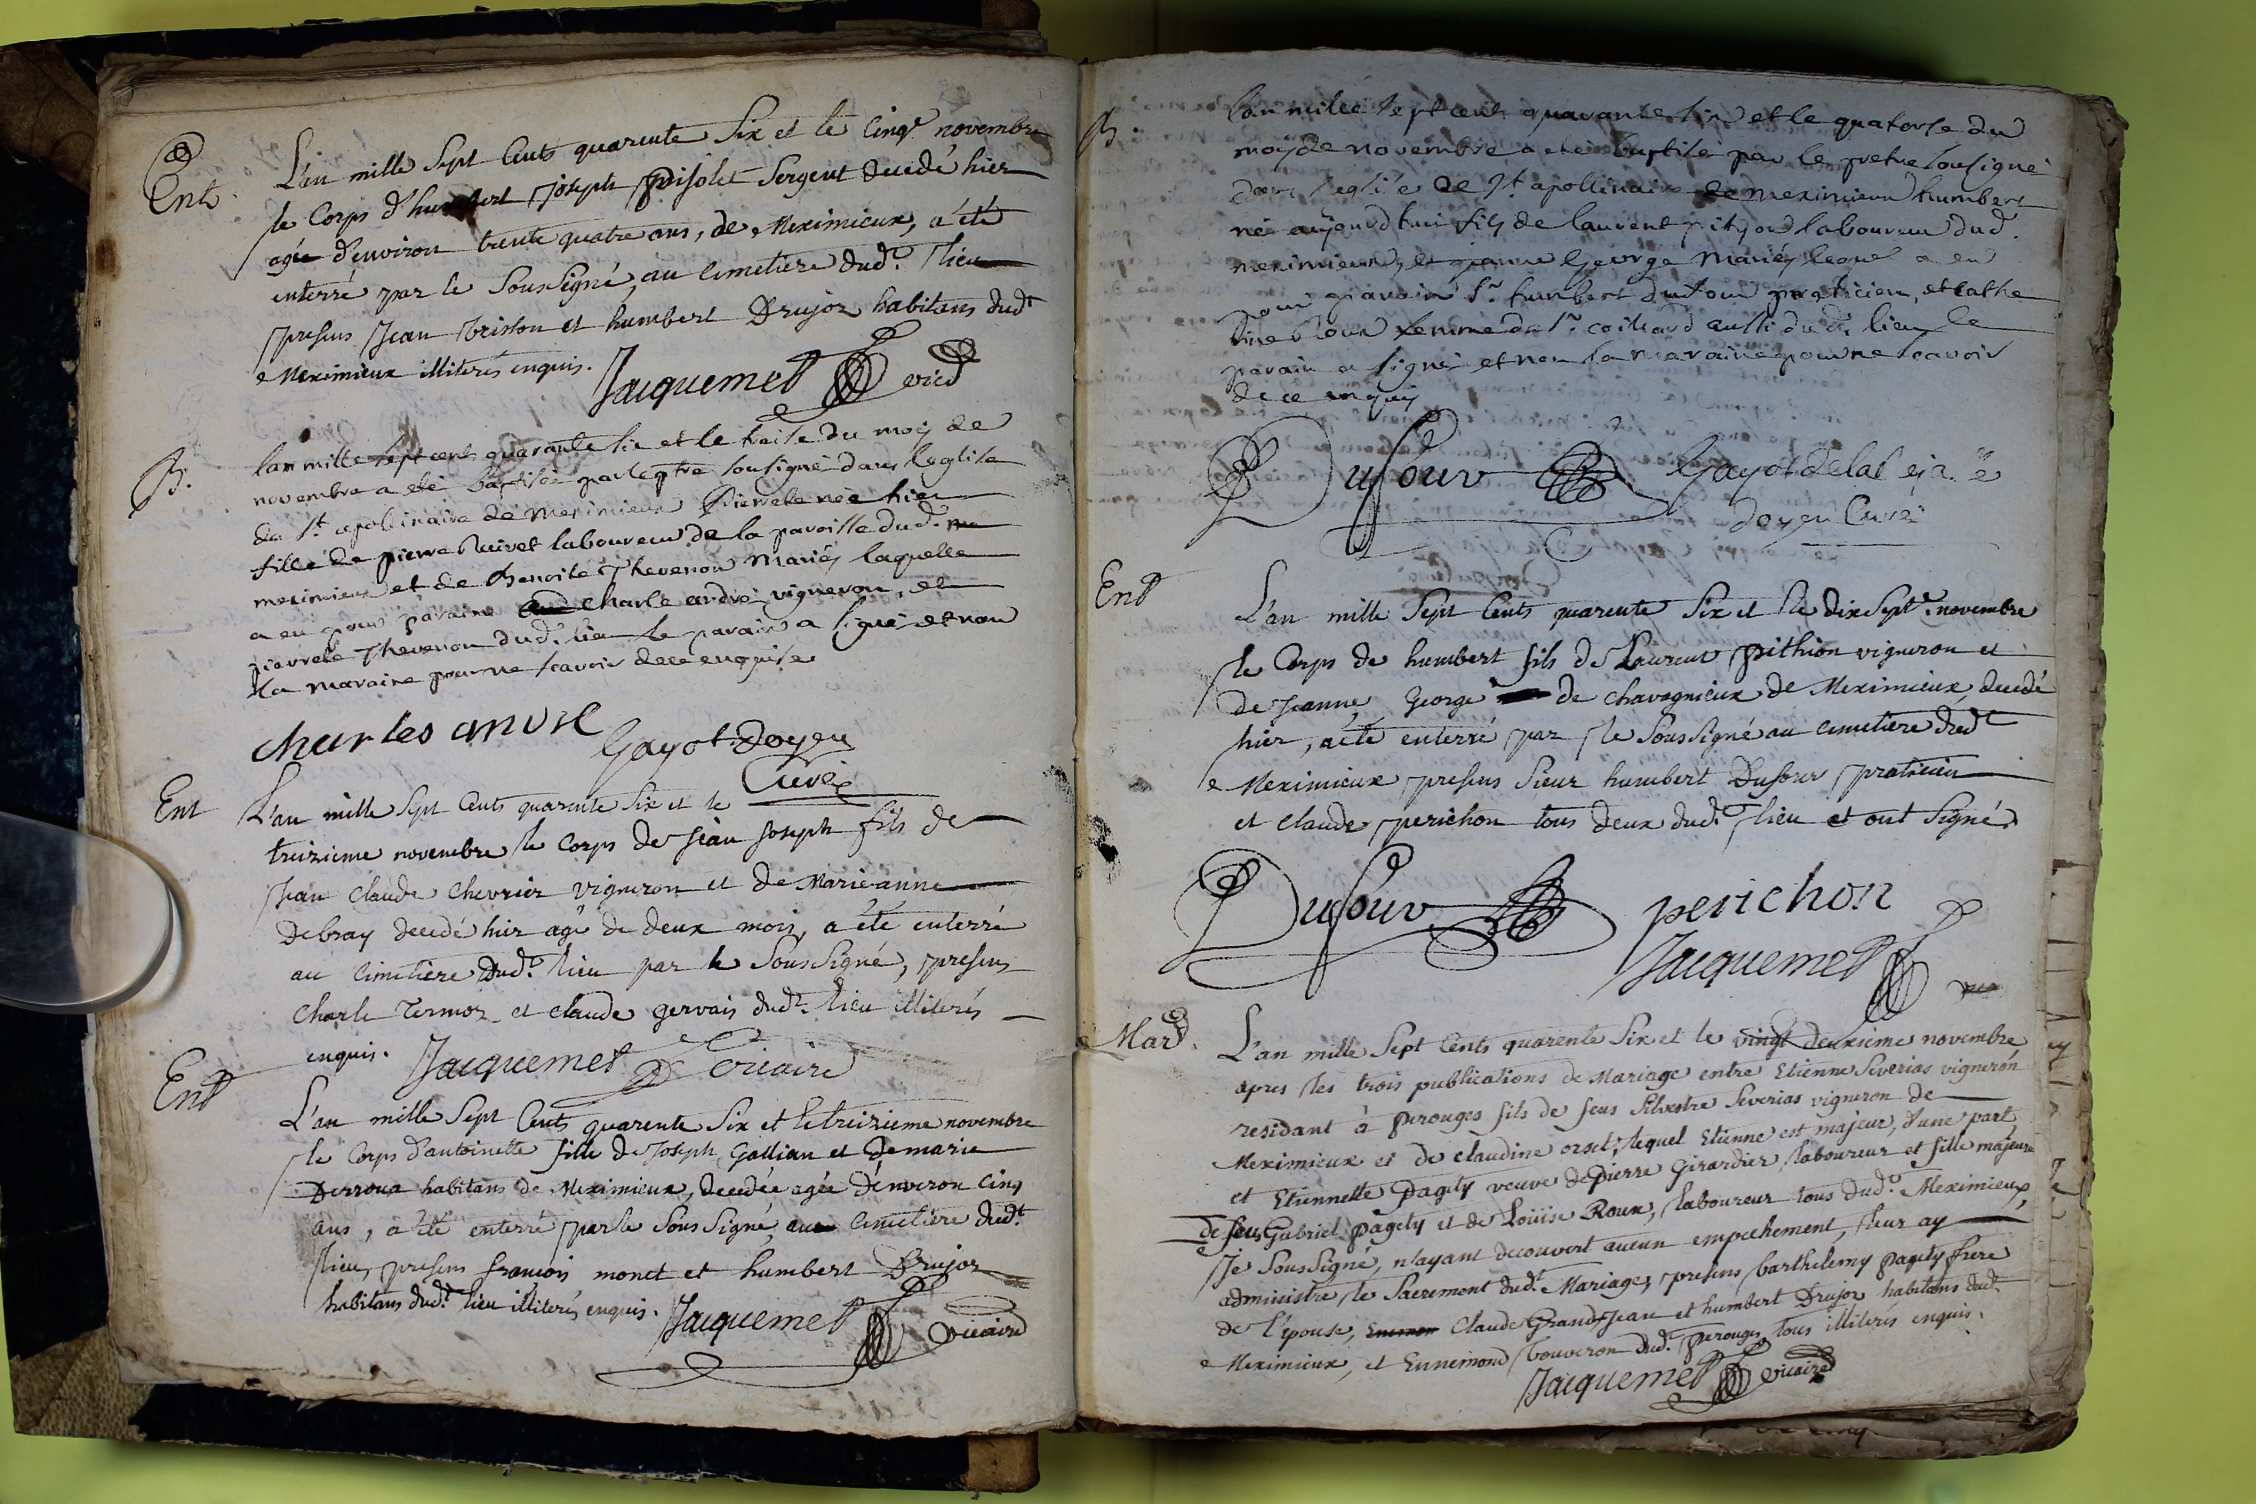 Ent.
L'an mille Sept Cents quarente Six et le Cinqe novembre
le Corps d'humbert joseph prisolet Sergent decedé hier
agée d'environ trente quatre ans, de Meximieux, a été
enterré par le Soussigné, au cimetiere dudt. lieu
presens Jean brisson et humbert Drujon habitans dudt
Meximieux illiterés enquis. Jacquemet vicd
B.
lan mille sept cent quarante six et le traise du moy de
novembre a eté baptisée par le ptre sousigné dans leglise
de St. apolinaire de meximieux pierrete née hier
fille de pierre Ruivet laboureur de la paroisse dud.
meximieux et de Benoite Thevenon mariés laquelle
a eu pour parain charle andré vigneron, et
pierrete Thevenon dud. lieu le parain a signé et non
la maraine pour ne scavoir dece enquise
charles andre Gayot Doyen
Curé
Ent
L'an mille Sept Cents quarente Six et le
treizieme novembre le Corps de jean joseph fils de
Jean Claude chevrier vigneron et de Marieanne
Debray decedé hier agé de deux mois, a été enterré
au cimetiere dudt. lieu par le Soussigné, presens
Charle Termoz et claude gervais dudt. lieu illiterés
enquis. Jacquemet vicaire
Ent
L'an mille Sept Cents quarente Six et le treizieme novembre
le Corps d'antoinette fille de Joseph Gallian et de marie
Derroux habitans de Meximieux, decedée agée d'environ Cinq
ans, a été enterré par le Soussigné, au Cimetiere dudt.
lieu, presens françois monet et humbert Drujon
habitans dudt. lieu illiterés enquis. Jacquemet vicaire
B.
lan mille sept cent quarante six et le quatorse du
moy de novembre a eté baptisé par le pretre sousigné
dans l'eglise de St. apollinaire de meximieux humbert
né aujourdhui fils de laurent pityon laboureur dud.
meximieux et jeanne George mariés lequel a eu
pour parain Sr. humbert dufour praticien, et cathe
rine Roux femme du Sr. coillard aussi dud. lieu le
parain a signé et non la maraine pour ne scavoir
de ce enquis
Dufour Gayot Delal
doyen Curé
Ent
L'an mille Sept Cents quarente Six et le dix Septe. novembre
le Corps de humbert fils de Laurent pithion vigneron et
de jeanne George de chavagnieux de Meximieux, decedé
hier, a été enterré par le Soussigné au cimetiere dudt
Meximieux presens Sieur humbert Dufour praticien
et claude perichon tous deux dudt. lieu et ont Signé.
Dufour perichon
Jacquemet vic
Mard.
L'an mille Sept Cents quarente Six et le vingt deuxieme novembre
apres les trois publications de Mariage entre Etienne Siverias vigneron
residant à perouges fils de feus Silvestre Siverias vigneron de
Meximieux et de claudine orset, lequel Etienne est majeur, d'une part,
et Etiennette Pagety veuve de Pierre Girardier, laboureur et fille majeure
de feus Gabriel pagety et de Loüise Roux, laboureur tous dudt. Meximieux,
Je Soussigné, n'ayant decouvert aucun empechement, leur ay
administré le Sacrement dudt. Mariage, presens barthelemy pagety frere
de l'épouse, Claude Grandjean et humbert Drujon habitans dudt.
Meximieux, et Ennemond bouveron dudt. perouges tous illiterés enquis.
Jacquemet vicaire